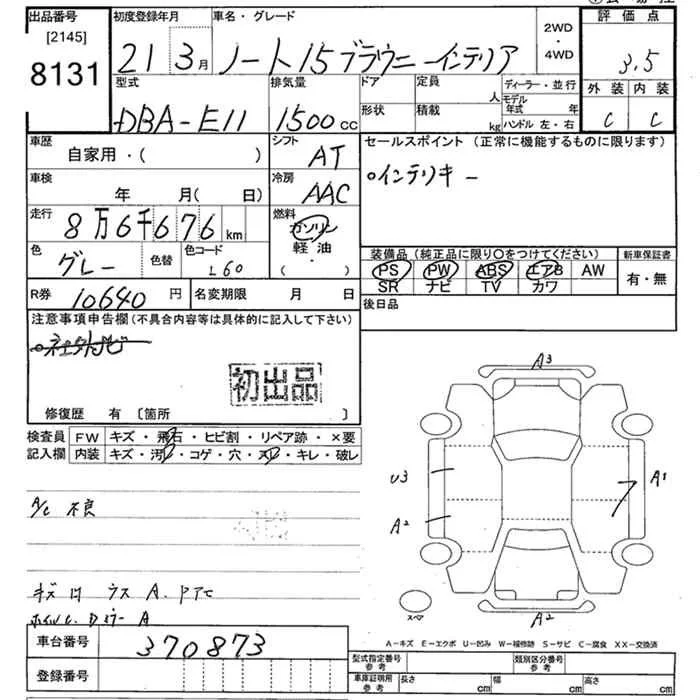 出品番号
[2145]
8131
初度登録年月
21 3月
車名・グレード
ノート 15 ブラウニーインテリア
2WD
・
4WD
評価点
3.5
外装 内装
C C
型式
DBA-E11
排気量
1500cc
ドア
形状
定員
人
積載
kg
ディーラー・並行
モデル年式 年
ハンドル 左・右
車歴
自家用・( )
シフト
AT
セールスポイント (正常に機能するものに限ります)
○インテリキー
車検
年 月(日)
冷房
AAC
走行
8万6千676km
燃料
ガソリン
軽油
・
( )
色
グレー
色替
色コード
L60
装備品 (純正品に限り○をつけてください)
PS PW ABS エアB AW
SR ナビ TV カワ
新車保証書
有・無
R券 10640円
名変期限 月 日
後日品
注意事項申告欄(不具合内容等は具体的に記入して下さい)
初出品
修復歴 有 [箇所 ]
検査員
記入欄
FW キズ・飛石・ヒビ割・リペア跡・×要
内装 キズ・汚レ・コゲ・穴・スレ・キレ・破レ
A/C 不良
A3
U3
A2
A1
スペア
A2
A-キズ E-エクボ U-凹み W-補修跡 S-サビ C-腐食 XX-交換済
車台番号 370873
登録番号
型式指定番号
参考
類別区分番号
参考
車庫証明用
参考
長さ cm
幅 cm
高さ cm